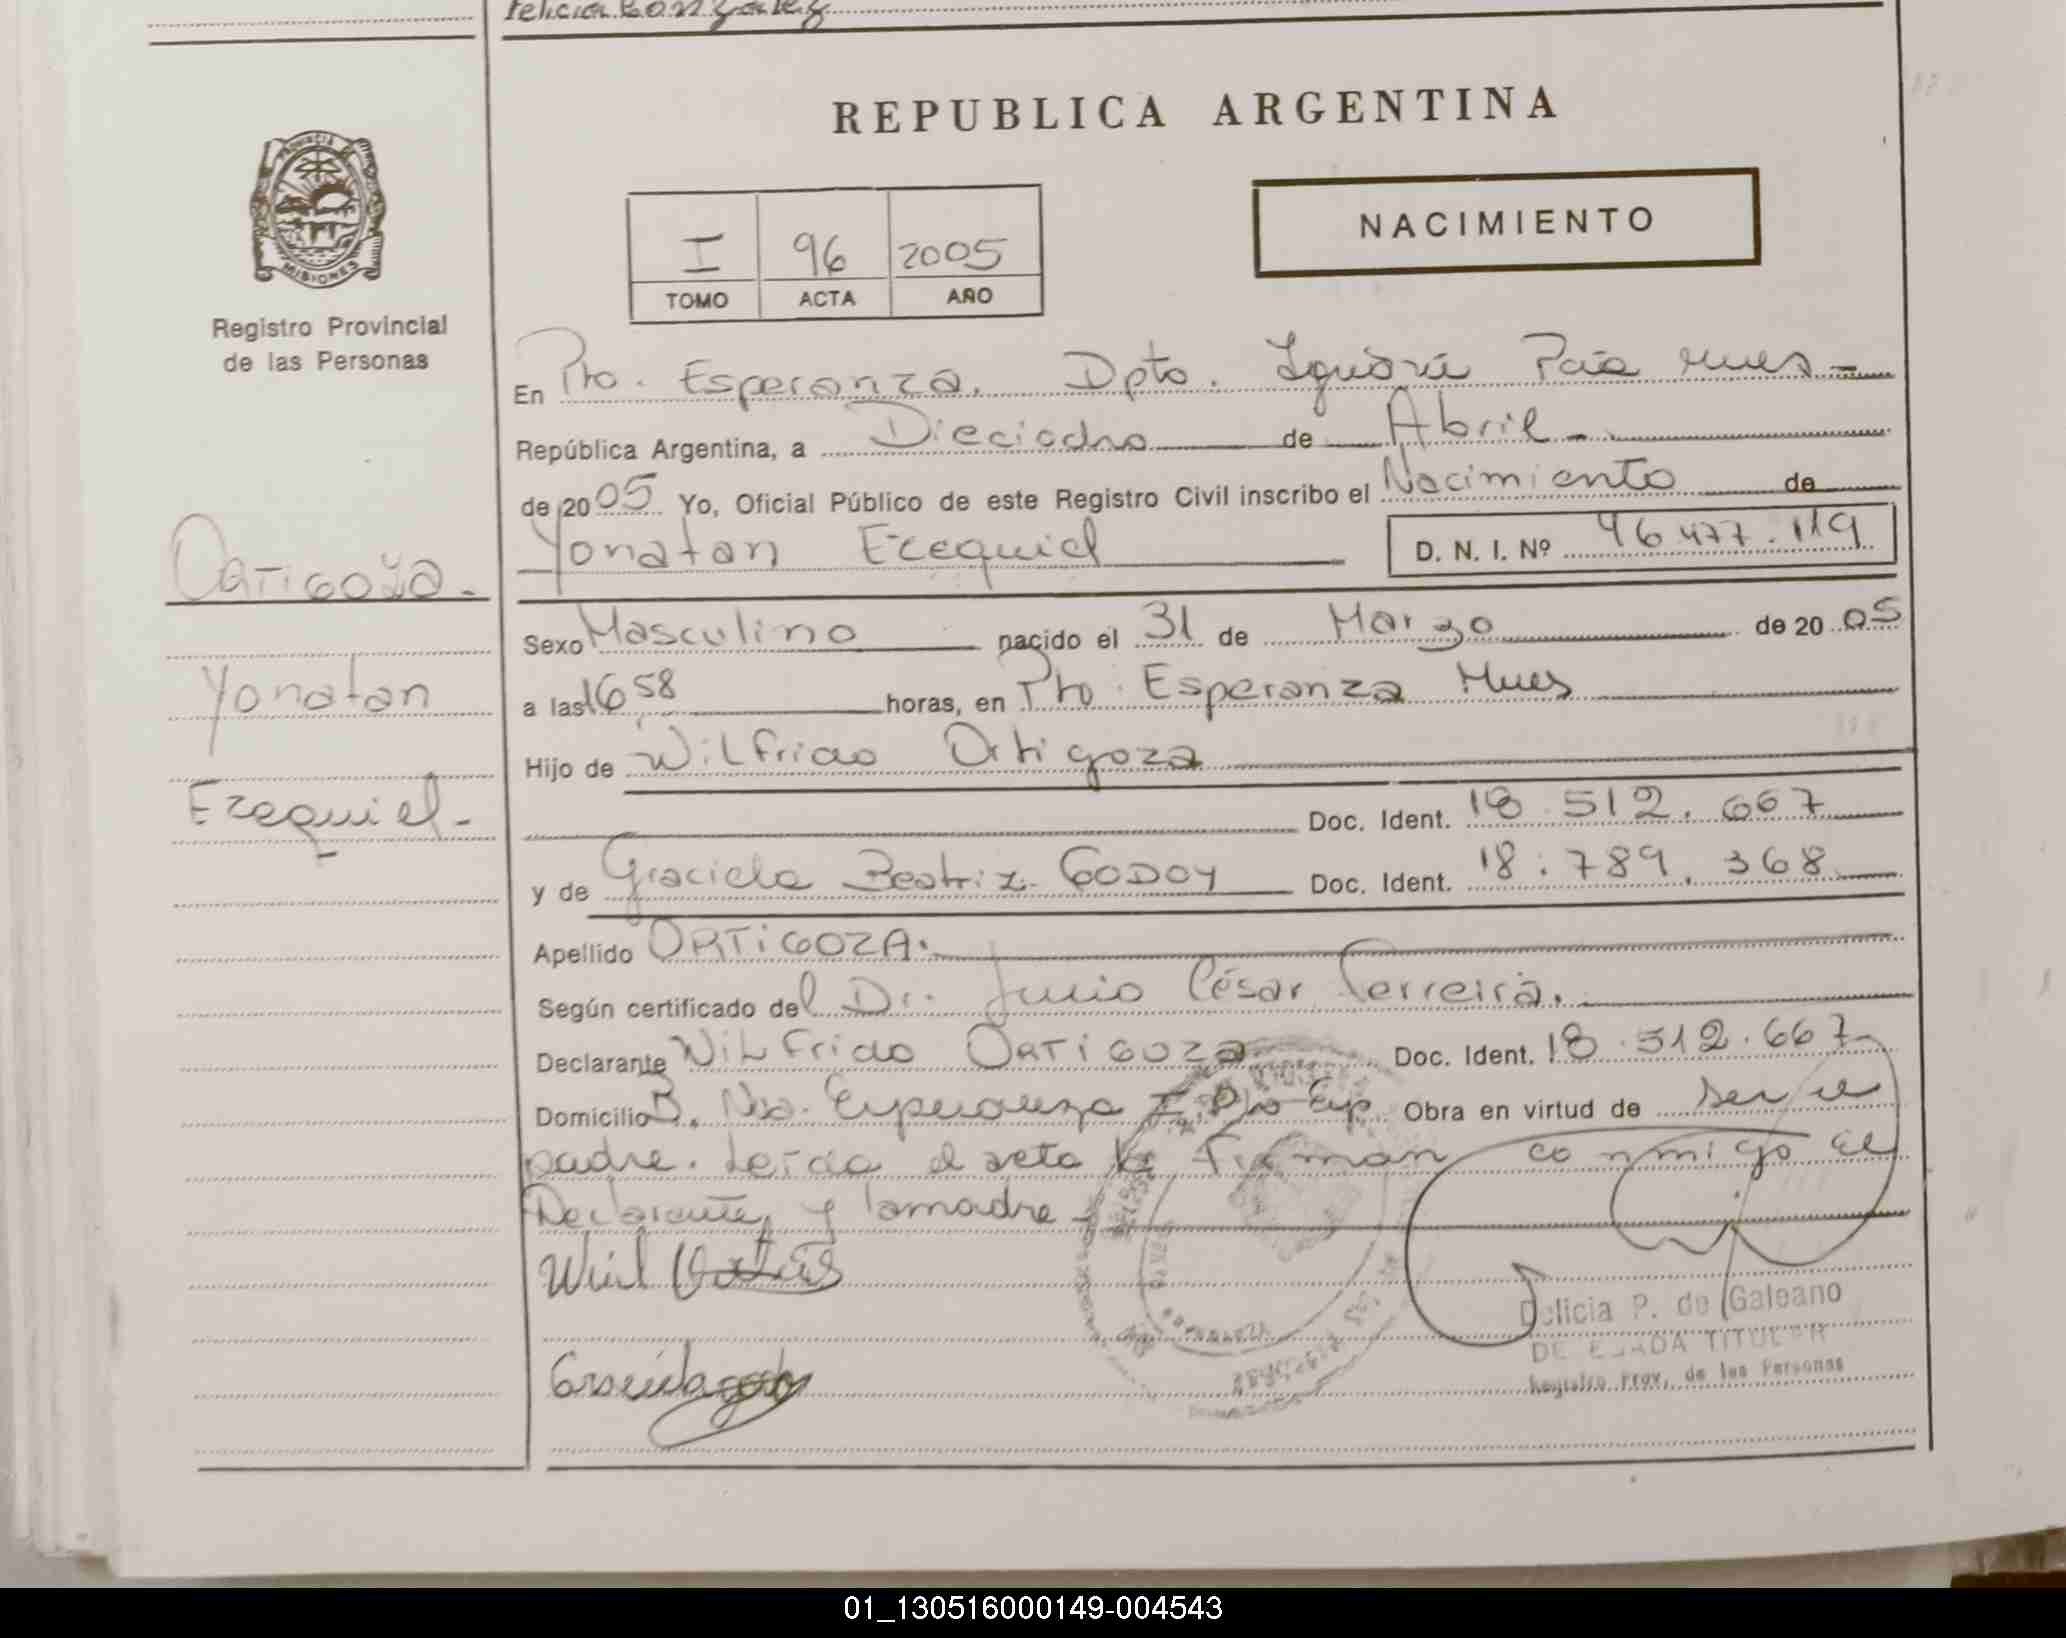 Felicia Gonzalez
REPUBLICA ARGENTINA
PROVINCIA DE
MISIONES
Registro Provincial
de las Personas
NACIMIENTO
I 96 2005
TOMO ACTA AÑO
En Pto. Esperanza. Dpto. Iguazú Pcia Mnes -
República Argentina, a Dieciocho de Abril -
de 2005 Yo, Oficial Público de este Registro Civil inscribo el Nacimiento de
Yonatan Ezequiel
D. N. I. Nº 46 477.119
ORTIGOZA.
Yonatan
Ezequiel -
Sexo Masculino nacido el 31 de Marzo de 2005
a las 16,58 horas, en Pto. Esperanza Mnes
Hijo de Wilfrido Ortigoza
Doc. Ident. 18.512.667
y de Graciela Beatriz GODOY Doc. Ident. 18.789.368
Apellido ORTIGOZA.
Según certificado del Dr. Julio César Ferreira.
Declarante Wilfrido ORTIGOZA Doc. Ident. 18.512.667
Domicilio B. Nva. Esperanza I Pto Esp Obra en virtud de ser el
padre. Leída el acta la Firman conmigo el
Declarante, y la madre
Delicia P. de Galeano
DELEGADA TITULAR
Registro Prov. de las Personas
01_130516000149-004543